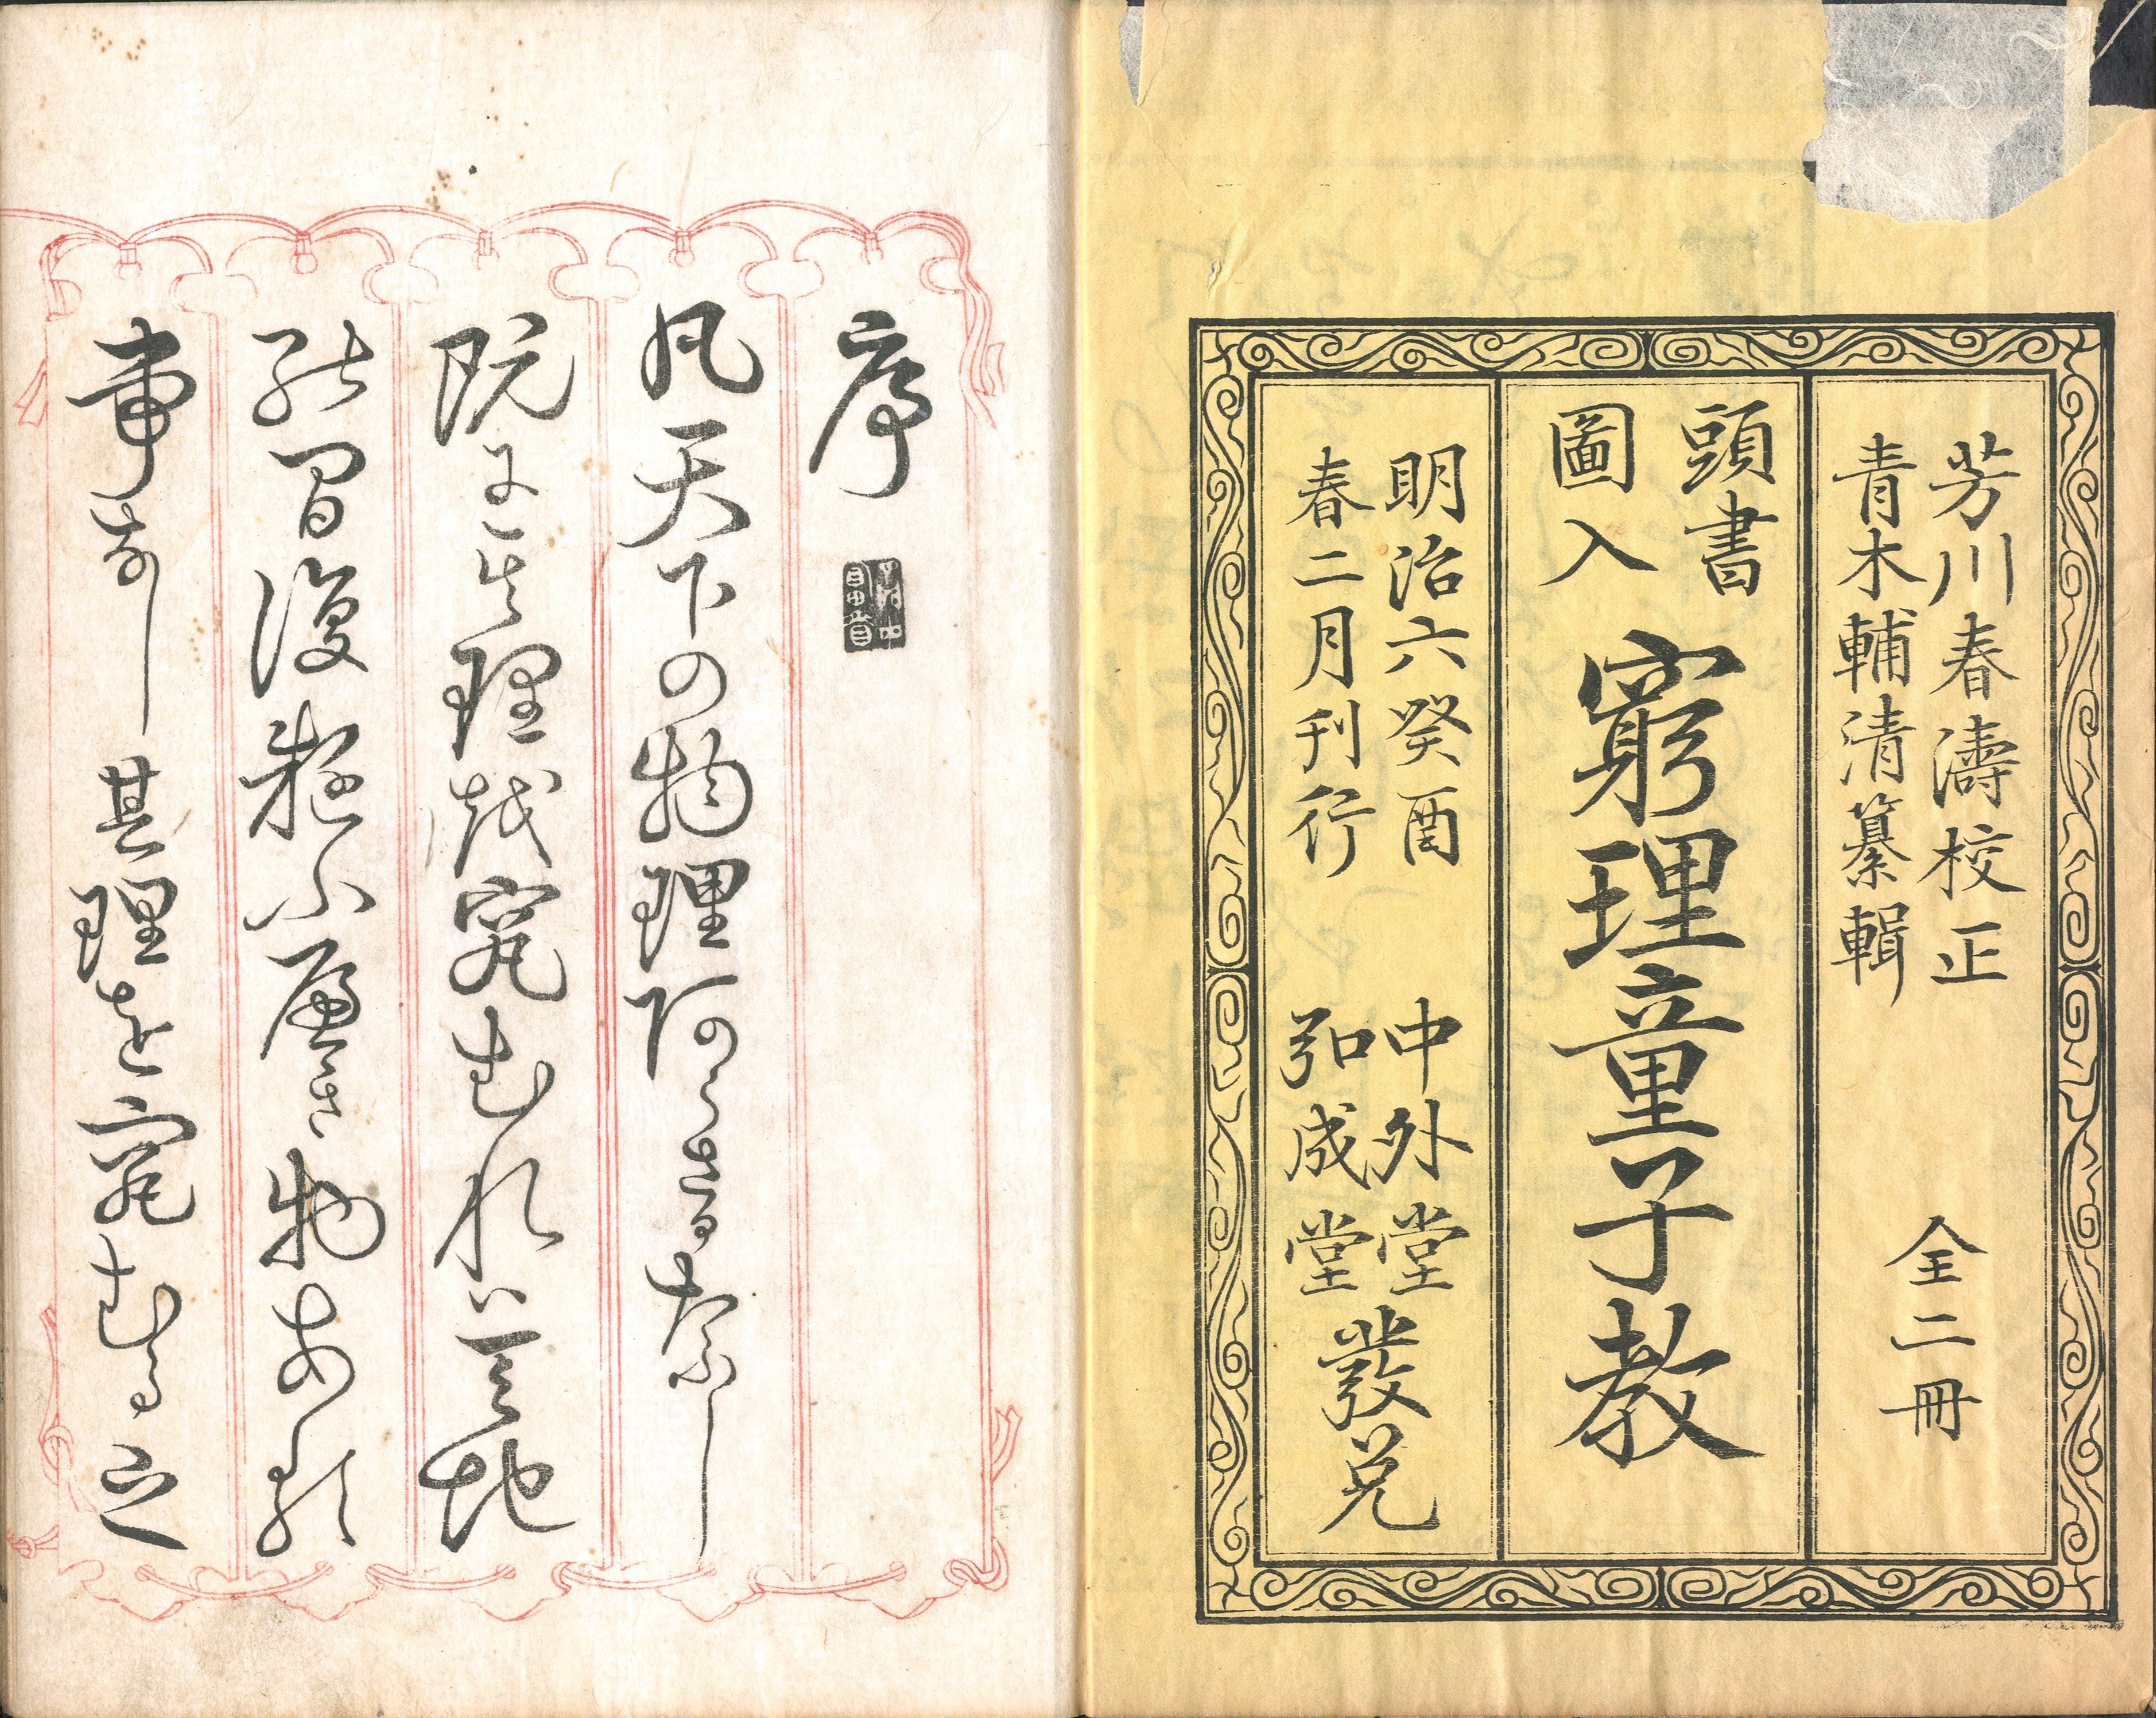 芳川春濤校正
青木輔清纂輯
全二冊
頭書
圖入
窮理童子教
明治六癸酉
春二月刊行
中外堂
弘成堂
發兌
序
凡天下の物理阿らさる奈し
既に其理越究むれハ天地
能間復疑ふき物ある
事なし其理を究むる之